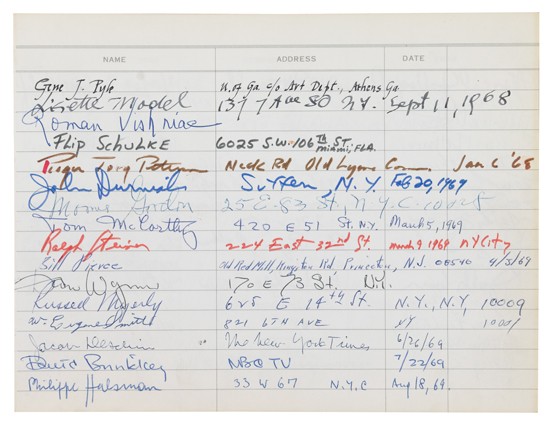 NAME ADDRESS DATE
Gene J. Pyle U. of Ga c/o Art Dept., Athens Ga.
Lisette Model 137 7 Ave SO NY. Sept 11, 1968
Roman Vishniac
Flip Schulke 6025 S.W. 106TH ST. Miami, FLA.
Roger Tory Peterson Neck Rd Old Lyme Conn. Jan 6 '65
John Suffern, N.Y. Feb 20, 1969
Gordon 25 E-83 St, N.Y.C-
Tom McCarthy 420 E 51 St. N.Y. March 5, 1969
Ralph Steiner 224 East 32nd St. march 9 1969 NY City
Bill Pierce Old Red Mill, Kingston Rd, Princeton, N.J. 08540 4/3/69
Dan Wynn 170 E 73 St, NY.
Russell 625 E 14th St. N.Y., N.Y, 10009
W. Eugene Smith 821 6TH AVE NY 10001
Jacob Deschin The New York Times 6/26/69
David Brinkley NBC TV 7/22/69
Philippe Halsman 33 W 67 N.Y.C Aug 18, 69.